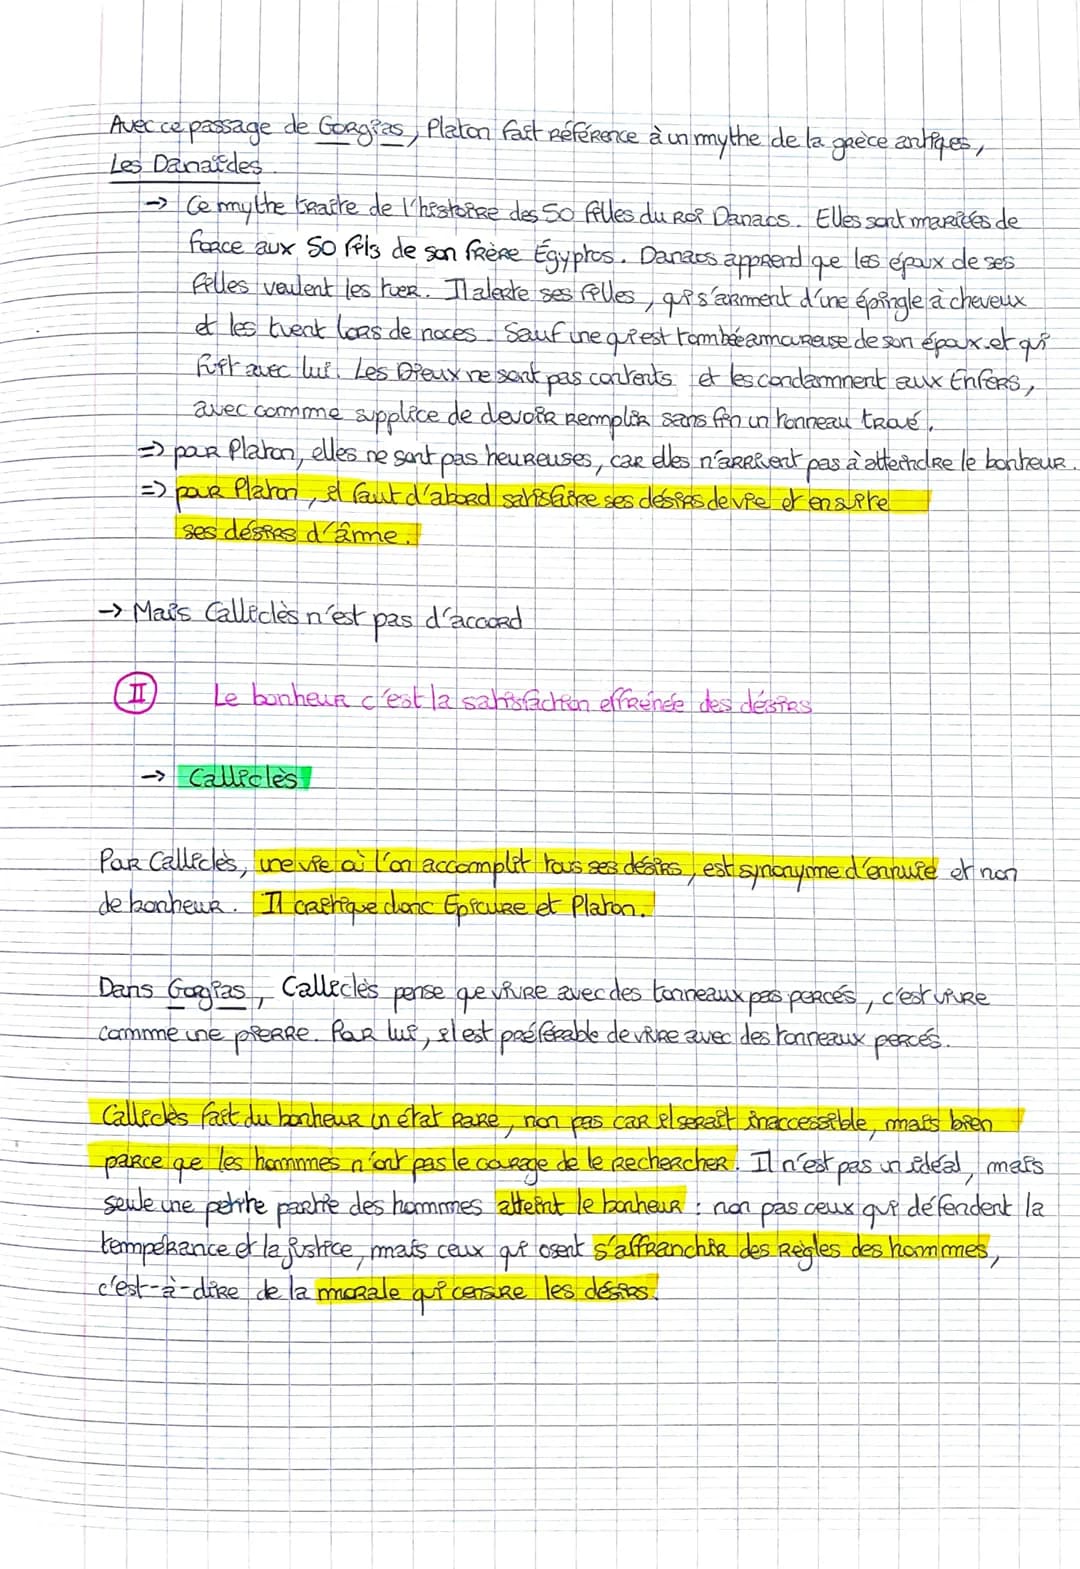 Avec ce passage de Gorgias, Platon fait référence à un mythe de la grèce antiques,
Les Danaïdes
→ Ce mythe traite de l'histoire des 50 filles du Roi Danaos. Elles sont mariées de
force aux 50 fils de son frère Égyptos. Danaos apprend que les époux de ses
filles veulent les tuer. Il alerte ses filles, qui s'arment d'une épingle à cheveux
et les tuent lors de noces. Sauf une qui est tombée amoureuse de son époux et qui
fuit avec lui. Les Dieux ne sont pas contents et les condamnent aux Enfers,
avec comme supplice de devoir remplir sans fin un tonneau troué.
=> pour Platon, elles ne sont pas heureuses, car elles n'arrivent pas à atteindre le bonheur.
=> pour Platon, il faut d'abord satisfaire ses désirs de vie et ensuite
ses désirs d'âme.
→ Mais Calliclès n'est pas d'accord
II Le bonheur c'est la satisfaction effrénée des désirs
→ Calliclès
Pour Calliclès, une vie où l'on accomplit tous ses désirs, est synonyme d'ennuie et non
de bonheur. Il critique donc Epicure et Platon.
Dans Gorgias, Calliclès pense que vivre avec des tonneaux pas percés, c'est vivre
comme une pierre. Pour lui, il est préférable de vivre avec des tonneaux percés.
Calliclès fait du bonheur un état rare, non pas car il serait inaccessible, mais bien
parce que les hommes n'ont pas le courage de le rechercher. Il n'est pas un idéal, mais
seule une petite partie des hommes atteint le bonheur : non pas ceux qui défendent la
tempérance et la justice, mais ceux qui osent s'affranchir des règles des hommes,
c'est-à-dire de la morale qui censure les désirs.